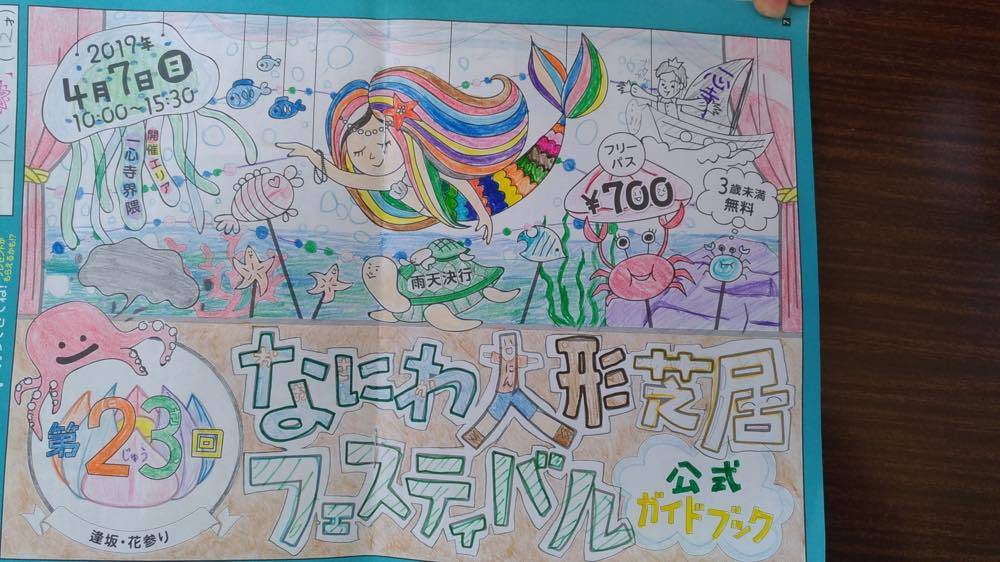 2019年
4月7日日
10:00〜15:30
開催エリア
一心寺界隈
フリー
パス
¥700
3歳未満
無料
雨天決行
第23回
じゅう
逢坂・花参り
なにわ人形芝居
フェスティバル
公式
ガイドブック
(12才